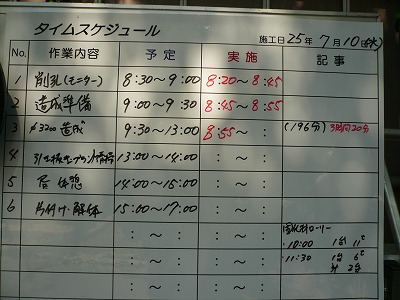 タイムスケジュール
施工日 25年 7月 10日(水)
No. 作業内容 予定 実施 記事
1 削孔(モニター) 8:30〜9:00 8:20〜8:45
2 造成準備 9:00〜9:30 8:45〜8:55
3 φ3200 造成 9:30〜13:00 8:55〜 : (196分) 3時間20分
4 13:00〜14:00 : 〜 :
5 昼休憩 14:00〜15:00 : 〜 :
6 片付け・解体 15:00〜17:00 : 〜 :
: 〜 : : 〜 : ローリー
: 〜 : : 〜 : ・10:00 1台 11t
: 〜 : : 〜 : ・11:30 1台 6t
計 2台